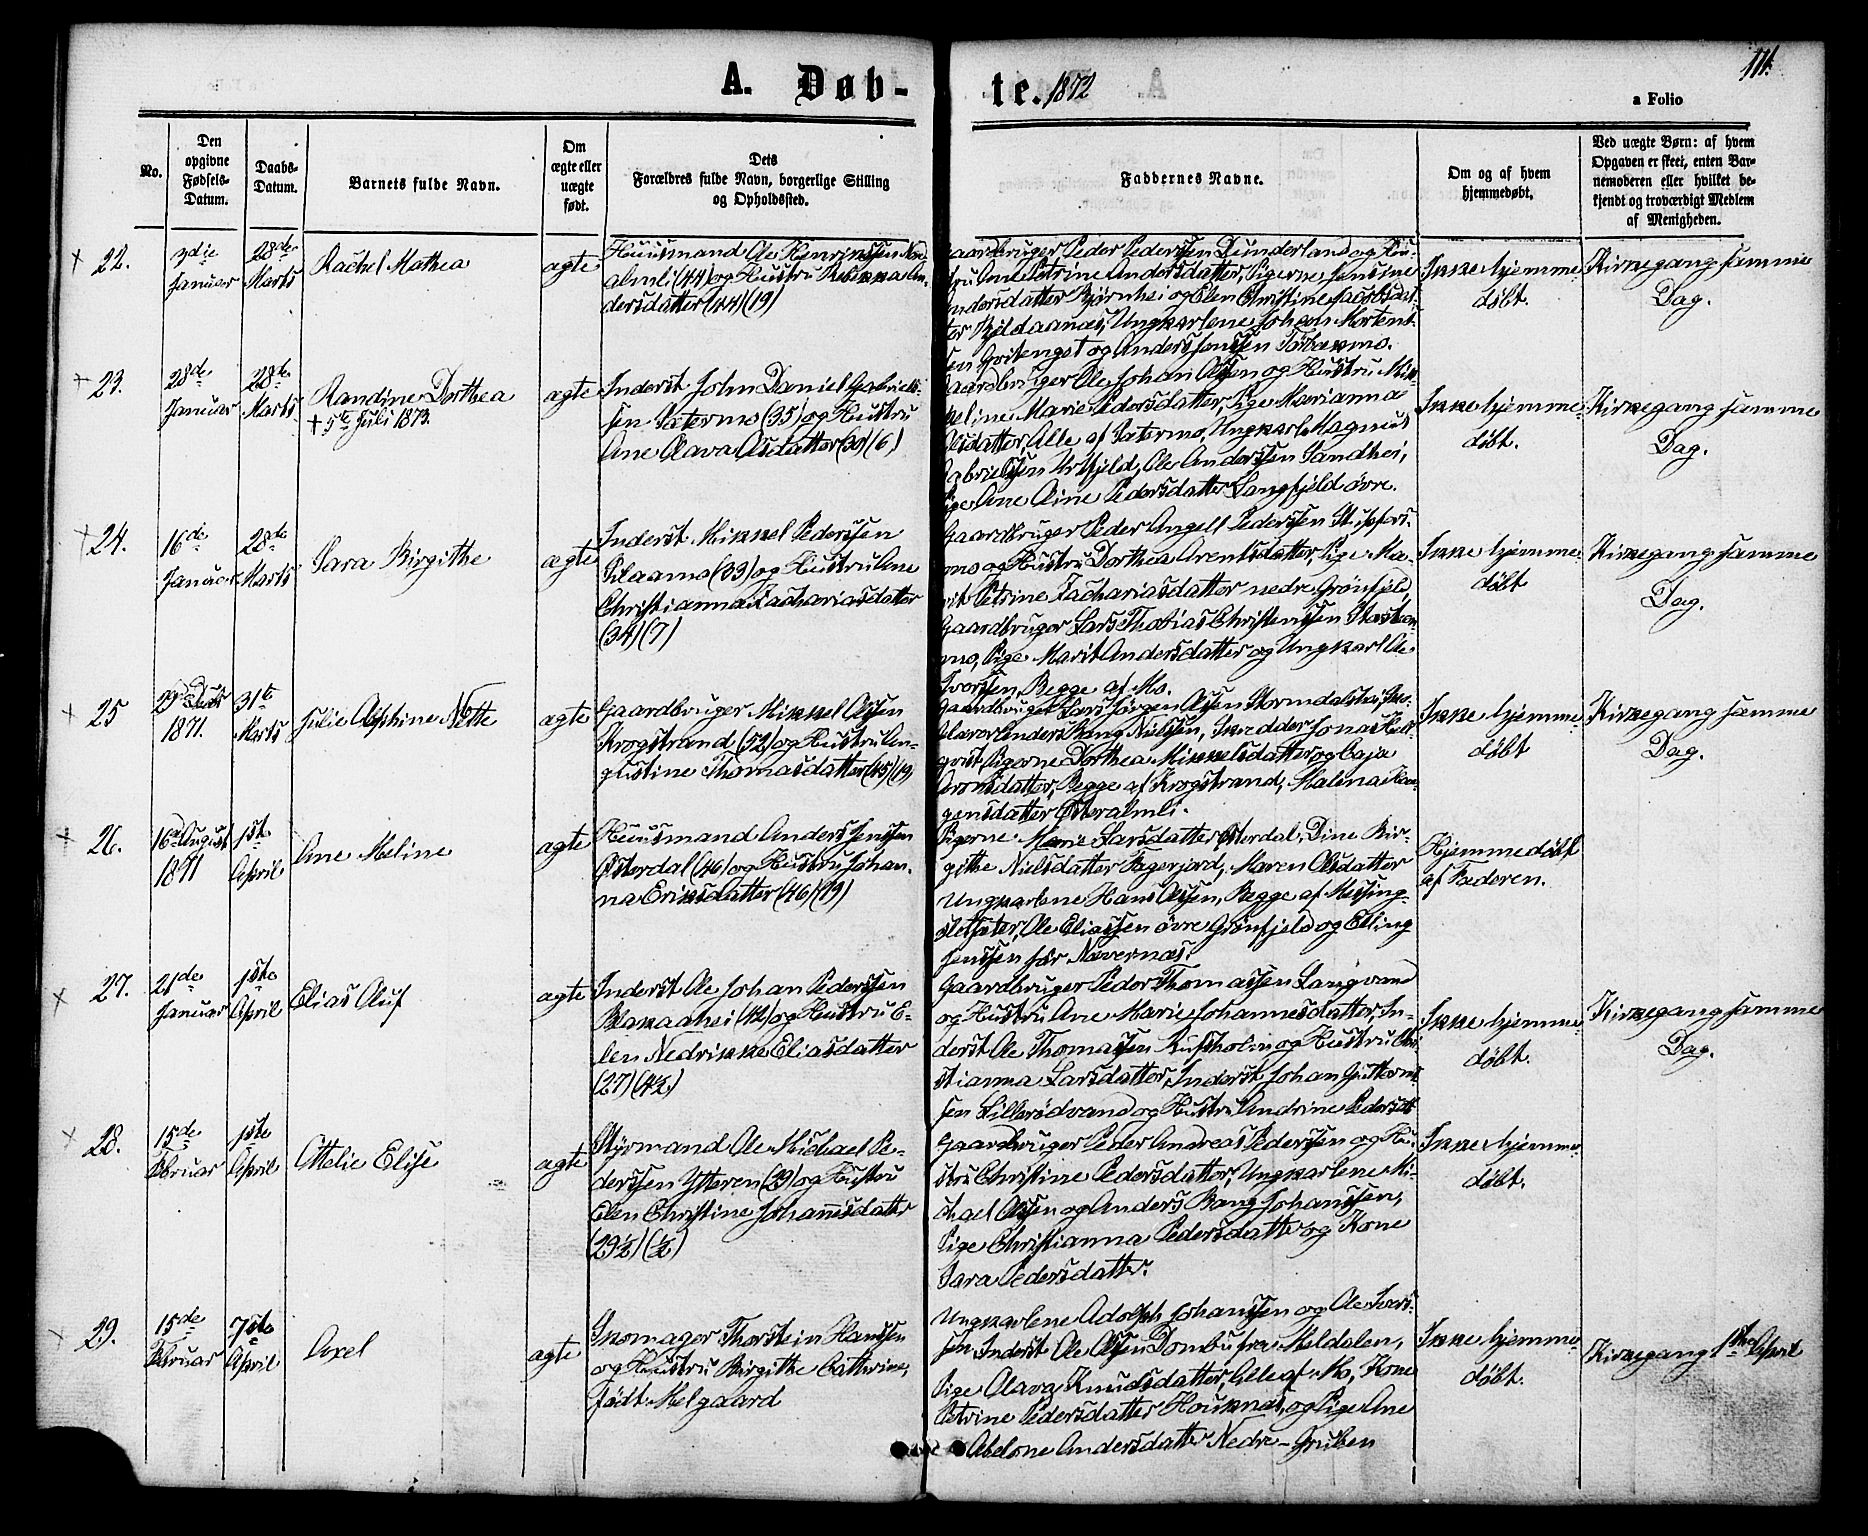 A. Døb-
te. 1872
111.
a Folio
No.
Den opgivne Fødsels-Datum.
Daabs-Datum.
Barnets fulde Navn.
Om ægte eller uægte født.
Dets Forældres fulde Navn, borgerlige Stilling og Opholdssted.
Faddernes Navne.
Om og af hvem hjemmedøbt.
Ved uægte Børn: af hvem
Opgaven er skeet, enten Bar-
nemoderen eller hvilket be-
kjendt og troværdigt Medlem
af Menigheden.
22.
3die
Januar
28de
Marts
Rachel Mathea
ægte
Huusmand Ole Henrikssen
almli (44) og Hustru Rebekka An-
dersdatter (44) (19)
Gaardbruger Peder Pederssen Dunderland og Hu-
stru Ane Petrine Andersdatter, Pigerne Jensine
Andersdatter Bjørnhei og Elen Christine Jacobsdat-
ter Ungkarlene Johan Mortens-
sen og Anders Jonssen
Ikke hjemme-
døbt.
Kirkegang samme
Dag.
23.
28de
Januar
28de
Marts
Randine Dorthea
† 5te Juli 1873.
ægte
Inderst John Daniel Gabriels-
sen Sætermo (35) og Hustru
Ane Olava Olsdatter (30) (6)
Gaardbruger Ole Johan Olssen og Hustru Mik-
keline Marie Pedersdatter, Pige Marianna
Olsdatter, Alle af Sætermo, Ungkarl Magnus
Gabrielssen Urtfjeld, Ole Anderssen Sandhei,
Pige Ane Oline Pedersdatter Langfjeld øvre.
Ikke hjemme-
døbt.
Kirkegang samme
Dag.
24.
16de
Januar
28de
Marts
Sara Birgithe
ægte
Inderst Mikkel Pederssen
Pilaamo (33) og Hustru Ane
Christianna Zachariasdatter
(34) (7)
Gaardbruger Peder Angell Pederssen
mo og Hustru Dorthea Arentsdatter, Pige Ma-
rit Petrine Zachariasdatter nedre Grønfjeld,
Gaardbruger Lars Thobias Christenssen
mo, Pige Marit Andersdatter og Ungkarl Ole
Iverssen, Begge af Mo.
Ikke hjemme-
døbt
Kirkegang samme
Dag.
25
29de Decbr
1871.
31te
Marts
Julie Olephine Nette
ægte
Gaardbruger Mikkel Olssen
Krogstrand (52) og Hustru Au-
gustine Thomasdatter (45) (19)
Gaardbruger Lars Jørgen Olssen
Anders Nielssen, Skrædder Jonas
Pigerne Dorthea Mikkelsdatter og Caja
Aronsdatter, Begge af Krogstrand, Malena
gensdatter Østeralmli.
Ikke hjemme-
døbt
Kirkegang samme
Dag.
26.
16de August
1871
1ste
April
Ane Meline
ægte
Huusmand Anders Jenssen
Østerdal (46) og Hustru Johan-
na Eriksdatter (46) (19)
Pigerne Marie Larsdatter Østerdal, Dine Bir-
githe Nielsdatter Fagerjord, Maren Olsdatter
Ungkarlene Hans Olssen, Begge af Messing-
sletsæter, Ole Eliassen øvre Grønfjeld og Elling
Jenssen Nævernæs.
Hjemmedøbt
af Faderen.
27.
21de
Januar
1ste
April
Elias Oluf
ægte
Inderst Ole Johan Pederssen
Blakaahei (42) og Hustru E-
len Nedrikke Eliasdatter
(27) (4½)
Gaardbruger Peder Thomassen Langvand
og Hustru Ane Marie Johannesdatter, In-
derst Ole Thomassen Rufsholm og Hustru Chri-
stianna Larsdatter, Inderst Johan Guttorms-
sen Lillerødvand og Hustru Andrine Pedersdtr
Ikke hjemme-
døbt.
Kirkegang samme
Dag.
28.
15de
Februar
1ste
April
Ottelie Elise
ægte
Styrmand Ole Michael Pe-
derssen Ytteren (29) og Hustru
Elen Christine Johannesdatter
(29½) (½)
Gaardbruger Peder Andreas Pederssen og Hu-
stru Christine Pedersdatter, Ungkarlene Mi-
chael Olssen og Anders Bang Johanssen,
Pige Christianna Pedersdatter og Kone
Sara Pedersdatter.
Ikke hjemme-
døbt.
29.
15de
Februar
7de
April
Axel
ægte
Skomager Thorstein Hanssen
og Hustru Birgithe Cathrine,
født Melgaard
Ungkarlene Adolph Johanssen og Ole Lars-
sen Inderst Ole Olssen Dombu fra Meldalen,
Pige Olava Knudsdatter, Alle af Mo, Kone
Petrine Pedersdatter Houknes, og Pige Ane
Abelone Andersdatter Nedre-Gruben
Ikke hjemme-
døbt.
Kirkegang 1ste April